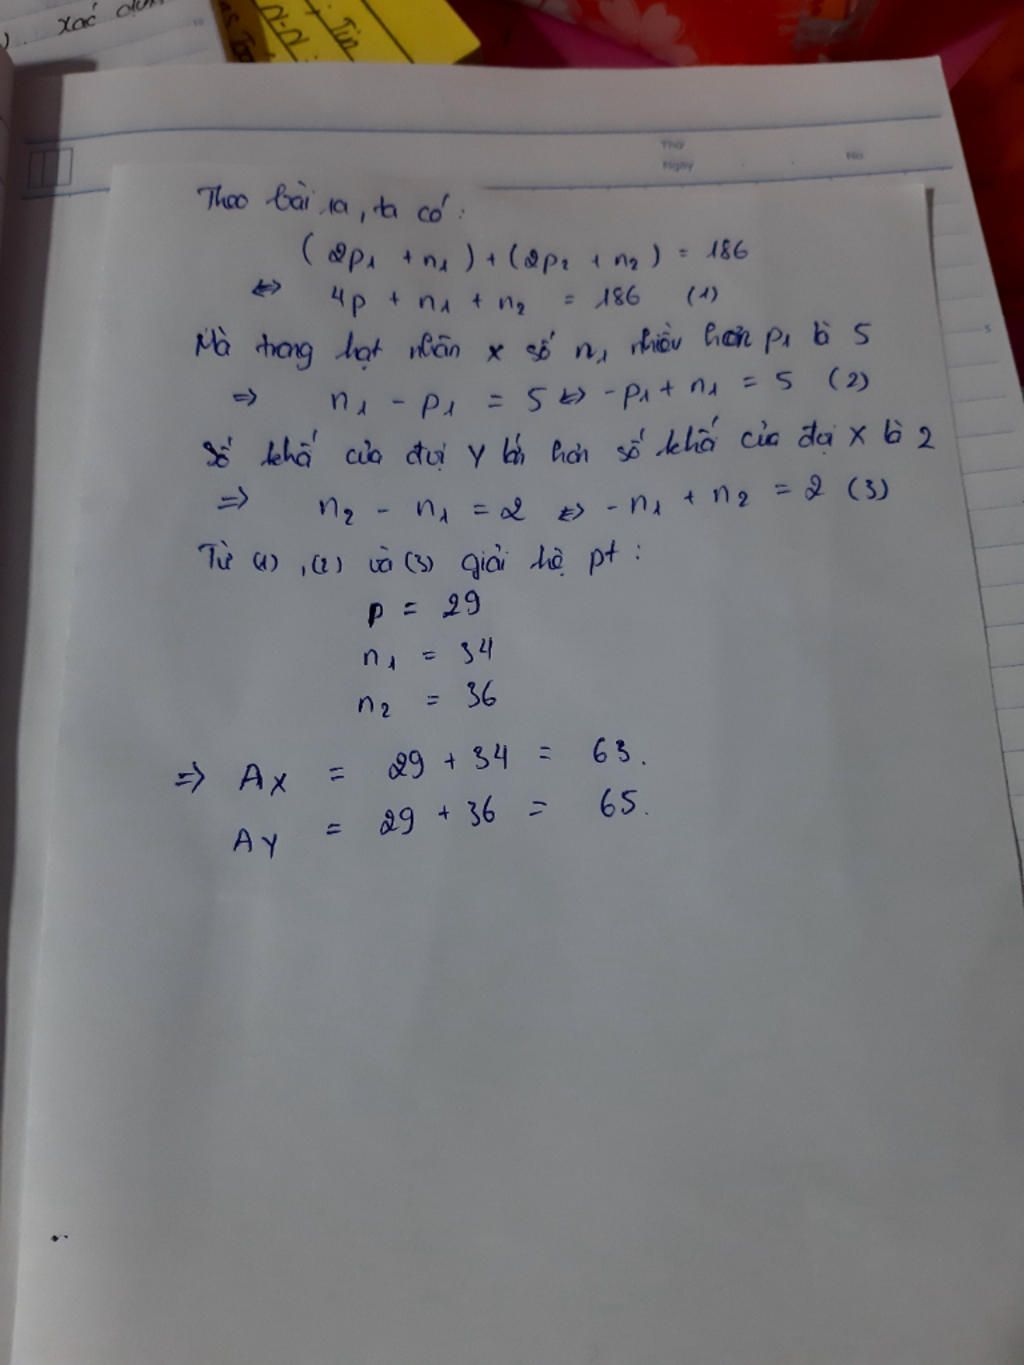 xác định
Tin
N-N
Thứ
Ngày
No
Theo bài ra, ta có:
(2p₁ + n₁) + (2p₂ + n₂) = 186
⇔ 4p + n₁ + n₂ = 186 (1)
Mà trong hạt nhân x số n₁ nhiều hơn p₁ là 5
⇒ n₁ - p₁ = 5 ⇔ -p₁ + n₁ = 5 (2)
Số khối của đvị Y lớn hơn số khối của đvị X là 2
⇒ n₂ - n₁ = 2 ⇔ -n₁ + n₂ = 2 (3)
Từ (1), (2) và (3) giải hệ pt:
p = 29
n₁ = 34
n₂ = 36
⇒ Aₓ = 29 + 34 = 63.
A_Y = 29 + 36 = 65.